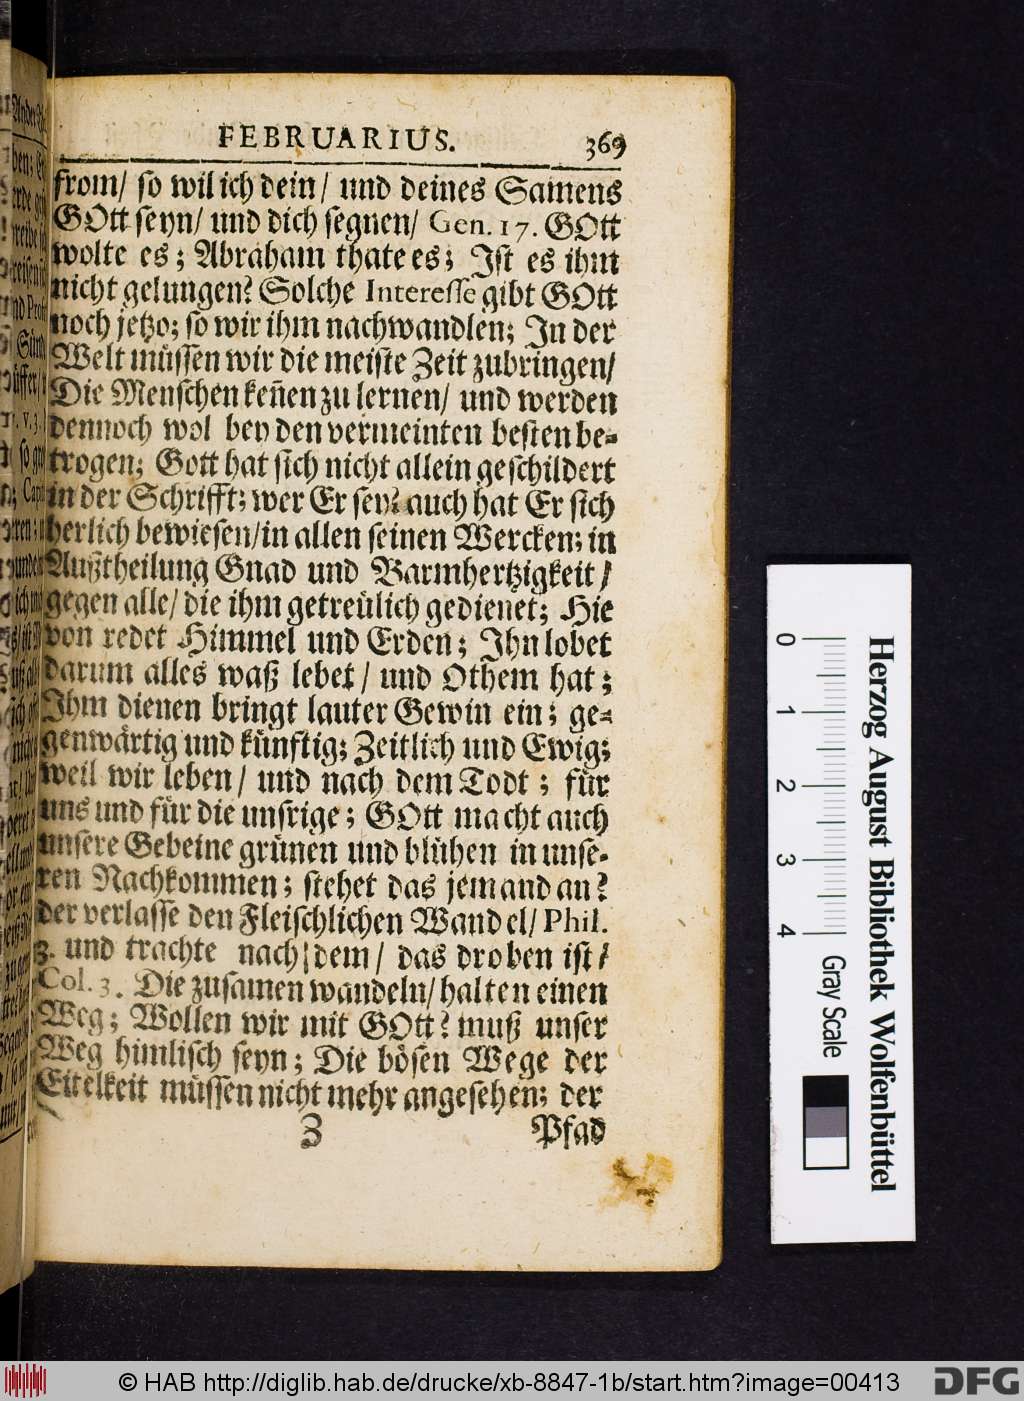 FEBRUARIUS. 369
from/ so wil ich dein/ und deines Samens
GOtt seyn/ und dich segnen/ Gen. 17. GOtt
wolte es; Abraham thate es; Ist es ihm
nicht gelungen? Solche Interesse gibt GOtt
noch jetzo; so wir ihm nachwandlen; In der
Welt müssen wir die meiste Zeit zubringen/
Die Menschen keñen zu lernen/ und werden
dennoch wol bey den vermeinten besten be-
trogen; Gott hat sich nicht allein geschildert
in der Schrifft; wer Er sey? auch hat Er sich
herlich bewiesen/ in allen seinen Wercken; in
Außtheilung Gnad und Barmhertzigkeit/
gegen alle/ die ihm getreülich gedienet; Hie
von redet Himmel und Erden; Ihn lobet
darum alles waß lebet/ und Othem hat;
Ihm dienen bringt lauter Gewin ein; ge-
genwärtig und künftig; Zeitlich und Ewig;
weil wir leben/ und nach dem Todt; für
uns und für die unsrige; GOtt macht auch
unsere Gebeine grünen und blühen in unse-
ren Nachkommen; stehet das jemand an?
der verlasse den Fleischlichen Wandel/ Phil.
3. und trachte nach dem/ das droben ist/
Col. 3. Die zusamen wandeln/ halten einen
Weg; Wollen wir mit GOtt? muß unser
Weg himlisch seyn; Die bösen Wege der
Eitelkeit müssen nicht mehr angesehen; der
Z Pfad
0 1 2 3 4 Gray Scale
Herzog August Bibliothek Wolfenbüttel
© HAB http://diglib.hab.de/drucke/xb-8847-1b/start.htm?image=00413
DFG